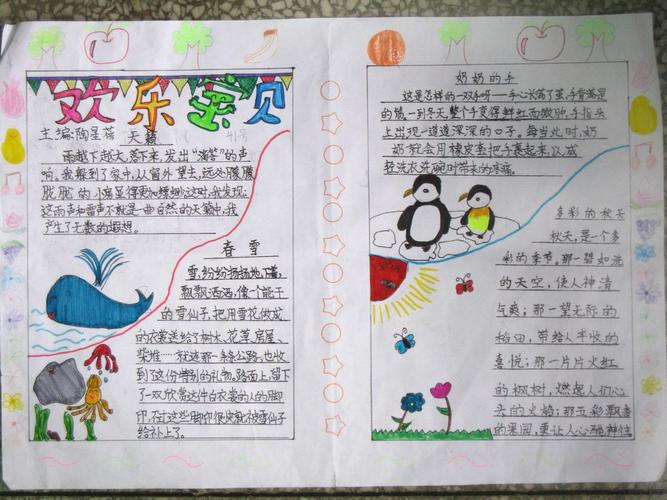 欢乐宝贝
主编:陶星蓓 天籁
雨越下越大,落下来,发出“滴答”的声
响,我躲到了家中,从窗外望去,远处朦朦
胧胧的小房显得更加缥缈,这时,我发现:
这雨声和雷声不就是一曲自然的天籁中,我
产生了无数的遐想。
春雪
雪,纷纷扬扬地下着,
飘飘洒洒,像个能干
的雪仙子,把用雪花做成
的衣裳送给了树木、花草、房屋、
柴堆……就连那一条条公路,也收
到了这份特别的礼物。路面上,留下
了一双欣赏这件白衣裳的人的脚
印,不过这些脚印很快就被雪仙子
给补上了。
奶奶的手
这是怎样的一双手呀——手心长满了茧,手背满是
的皱,一到冬天,整个手变得鲜红而嫩肿,手指头
上出现一道道深深的口子,每当此时,奶
奶就会用橡皮膏把手裹起来,以减
轻洗衣洗碗时带来的疼痛。
多彩的秋天
秋天,是一个多
彩的季节。那一碧如洗
的天空,使人神清
气爽;那一望无际的
稻田,带给人丰收的
喜悦;那一片片火红
的枫树,燃起人们心
头的火焰;那五彩飘香
的果园,更让人心驰神往